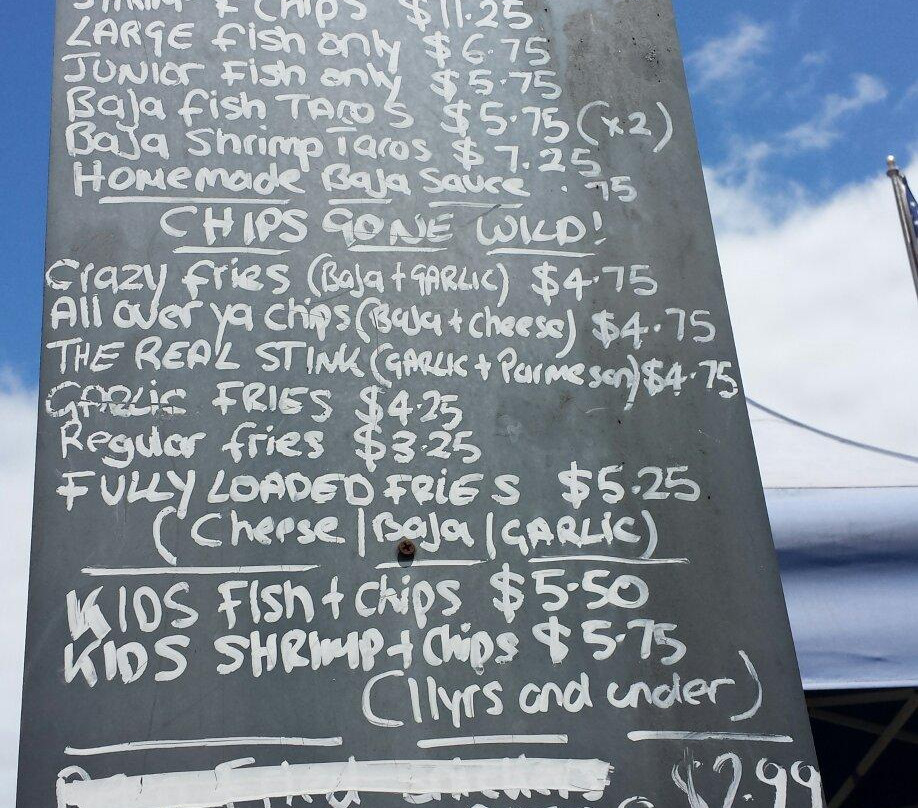 & CHIPS $11.25
LARGE fish only $6.75
JUNIOR Fish only $5.75
Baja fish TACOS $5.75 (x2)
Baja Shrimp Tacos $7.25
Homemade Baja Sauce .75
CHIPS GONE WILD!
Crazy fries (Baja + GARLIC) $4.75
All over ya chips (Baja + cheese) $4.75
THE REAL STINK (GARLIC + Parmesan) $4.75
GARLIC FRIES $4.25
Regular fries $3.25
FULLY LOADED FRIES $5.25
(Cheese | Baja | GARLIC)
KIDS Fish + chips $5.50
KIDS SHRIMP + Chips $5.75
(11yrs and under)